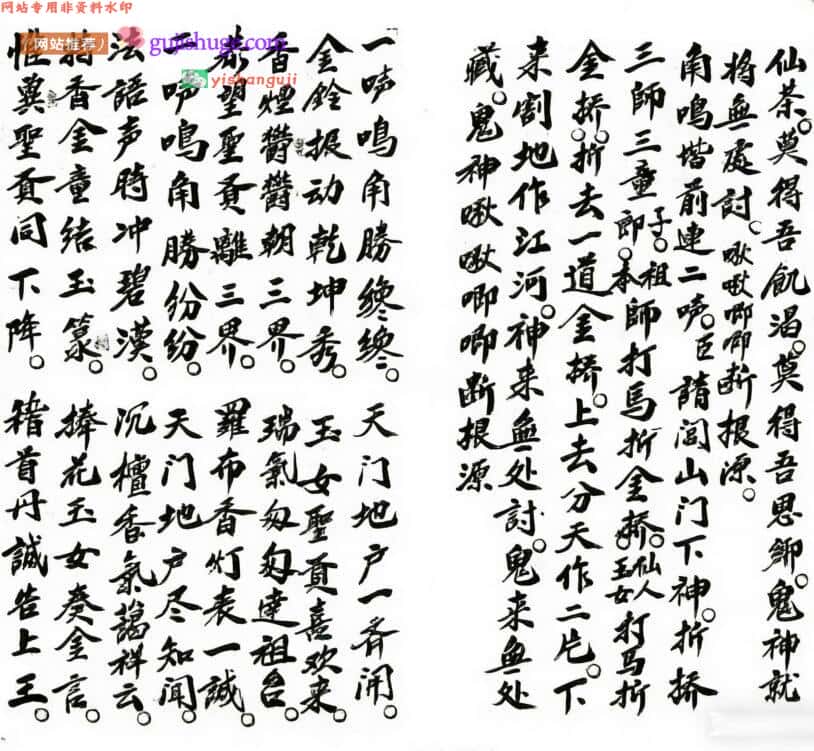 网站专用非资料水印
网站推荐
gujishuge.com
yishanguji
仙茶。莫得吾飢渴。莫得吾思鄉。鬼神就
將無處討。啾啾唧唧断根源。
角鳴堦前連二声。臣請閭山门下神。折挢
三師三童子郎。祖本師打馬折金挢。仙人玉女打马折
金挢。折去一道金挢。上去分天作二片。下
来割地作江河。神来無处討。鬼来無处
藏。鬼神啾啾唧唧断根源
一声鳴角勝纔纔。天门地户一齐開。
金鈴振动乾坤秀。玉女聖賢喜欢来。
香煙欝欝朝三界。瑞氣匆匆達祖台。
恭望聖賢離三界。羅布香灯表一誠。
二声鳴角勝纷纷。天门地户尽知聞。
法語声時冲碧漢。沉檀香氣藹祥云。
持香金童结玉篆。捧花玉女奏金言。
惟冀聖賢同下降。稽首丹誠告上王。